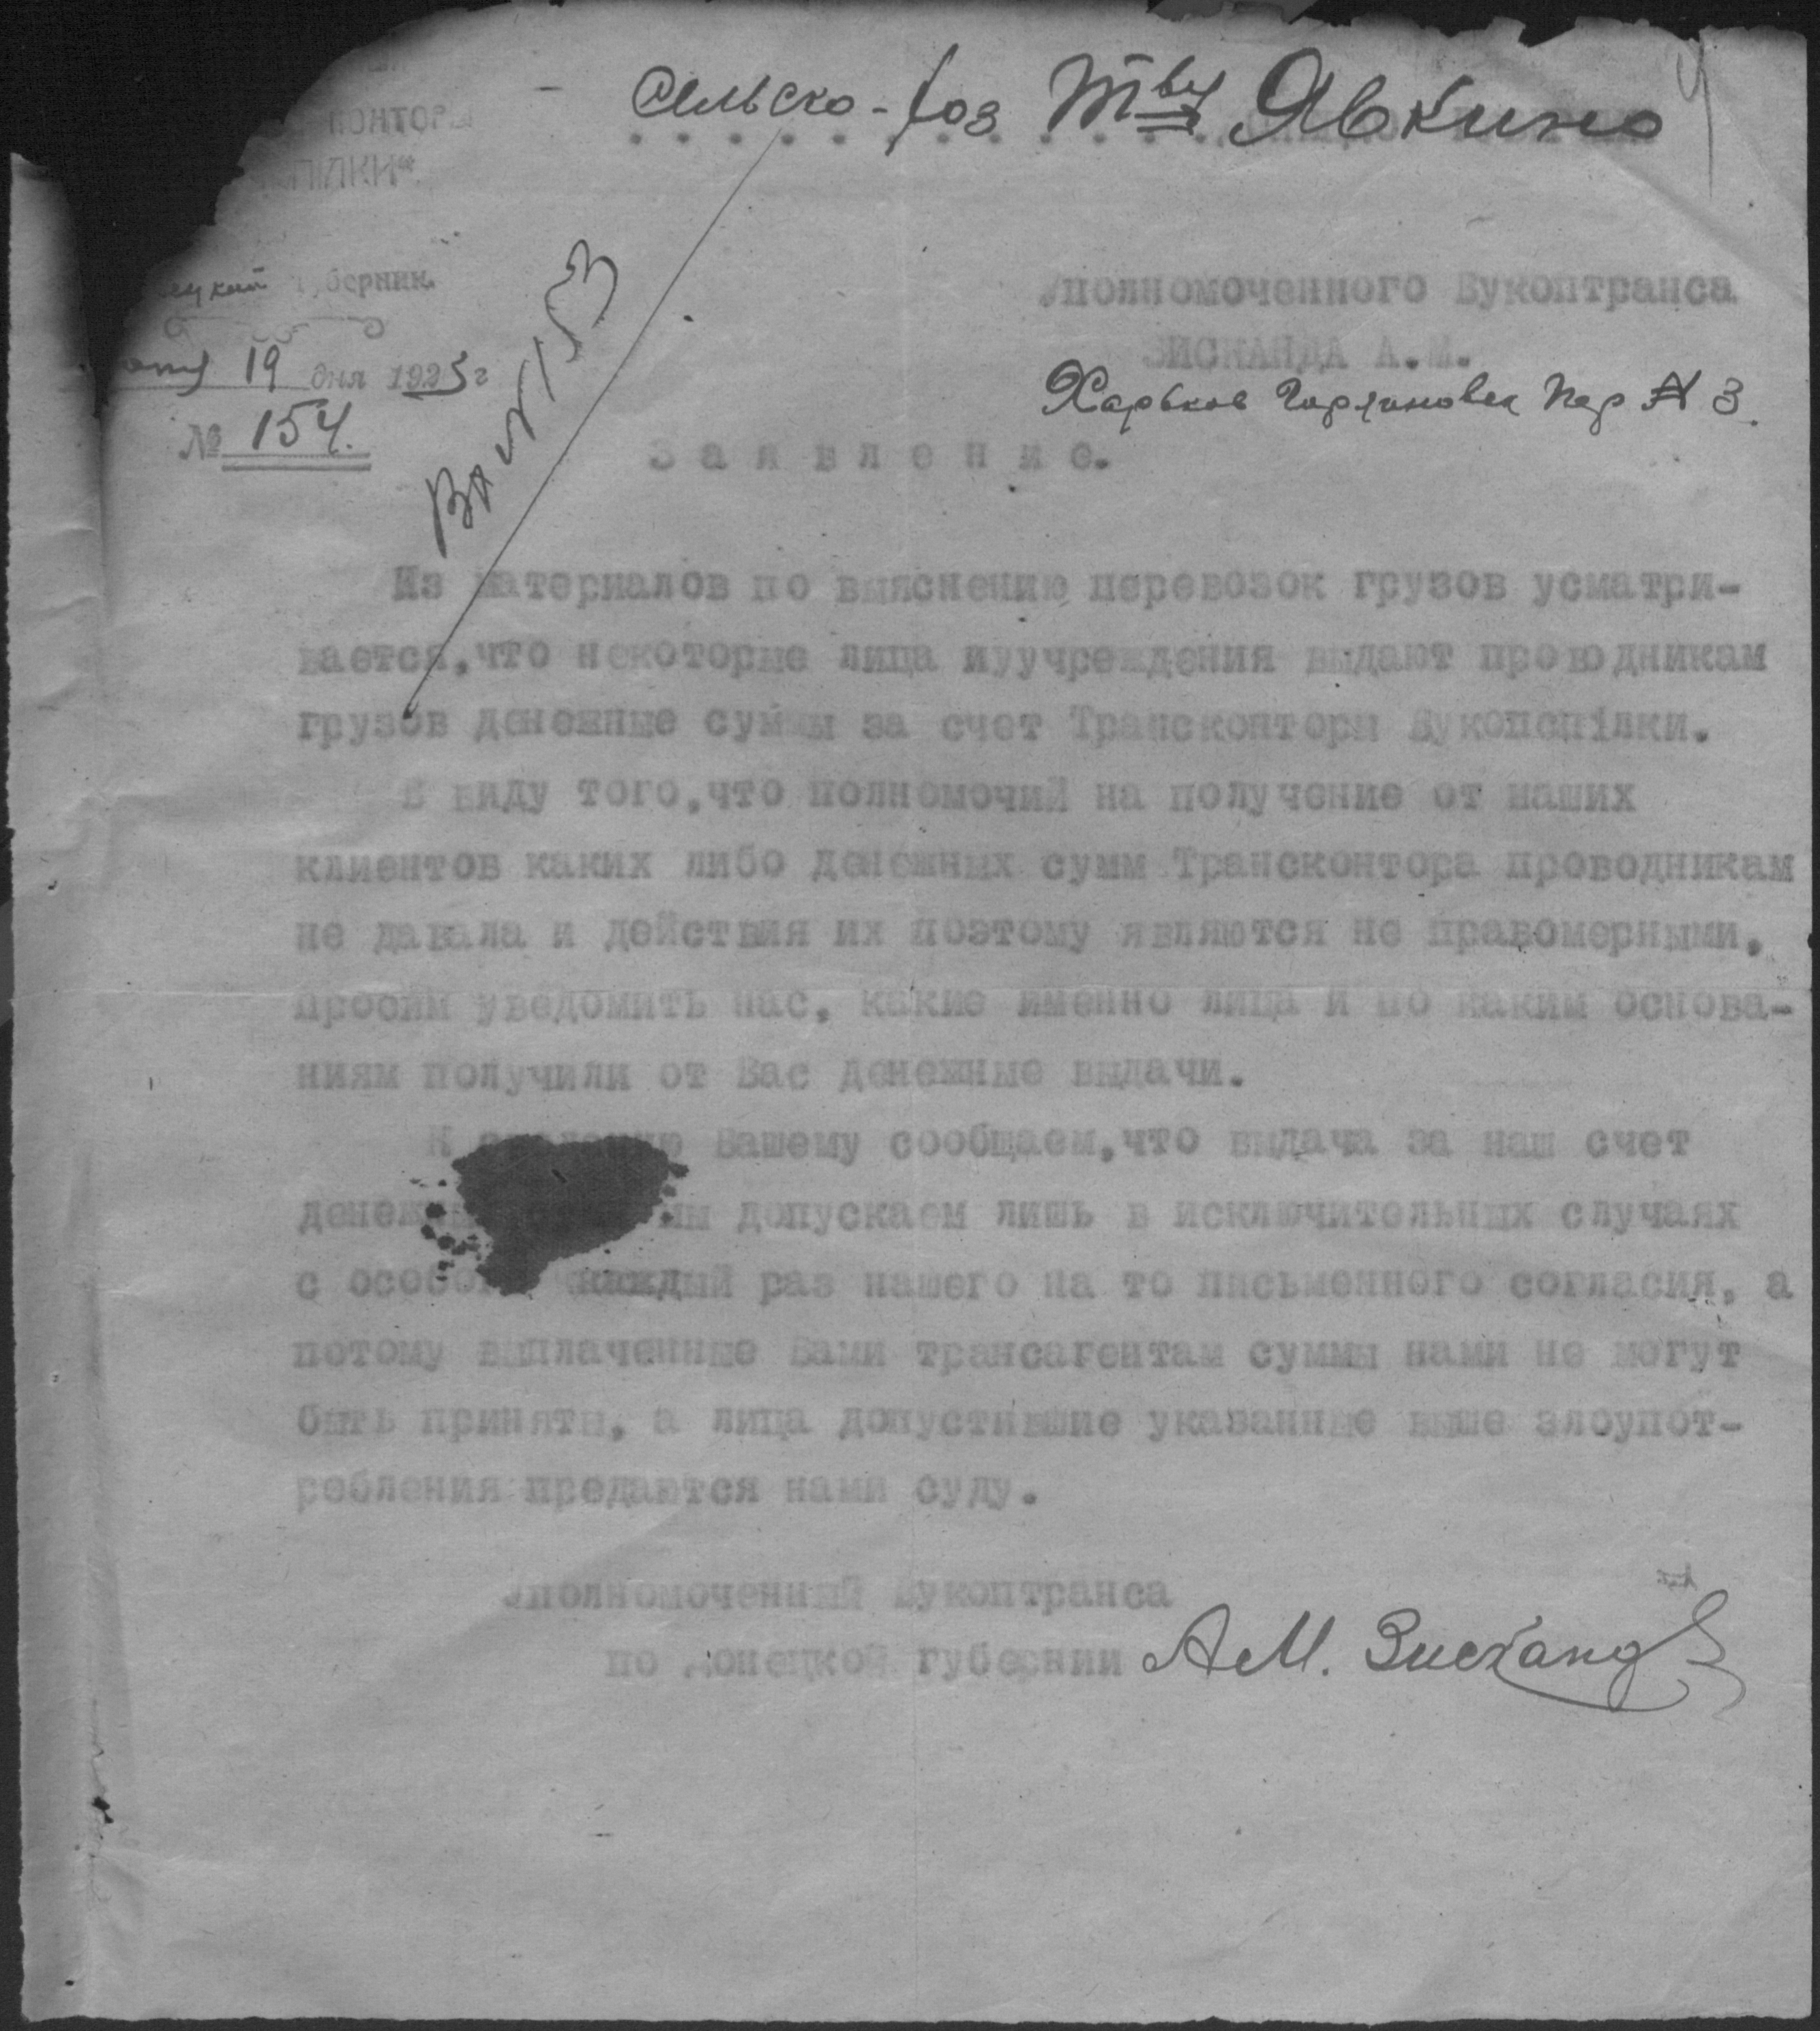 Сельско-хоз Тву Явкино
конторы
ПІЛКИ"
губернии.
19 дня 1923 г
№ 154.
Вх № 153
Уполномоченного Вукоптранса
ЗИСКАНДА А.М.
Харьков Пер № 3.
Заявление.
Из материалов по выяснению перевозок грузов усматри-
вается,что некоторые лица иуучреждения выдают проводникам
грузов денежные суммы за счет Трансконторы Вукопспілки.
В виду того,что полномочий на получение от наших
клиентов каких либо денежных сумм Трансконтора проводникам
не давала и действия их поэтому являются не правомерными,
просим уведомить нас, какие именно лица и по каким основа-
ниям получили от Вас денежные выдачи.
К Вашему сообщаем,что выдача за наш счет
мы допускаем лишь в исключительных случаях
с каждый раз нашего на то письменного согласия, а
потому выплаченные Вами трансагентам суммы нами не могут
быть приняты, а лица допустившие указанные выше злоупот-
ребления предаются нами суду.
Уполномоченный Вукоптранса
по Донецкой губернии А.М. Зисканд